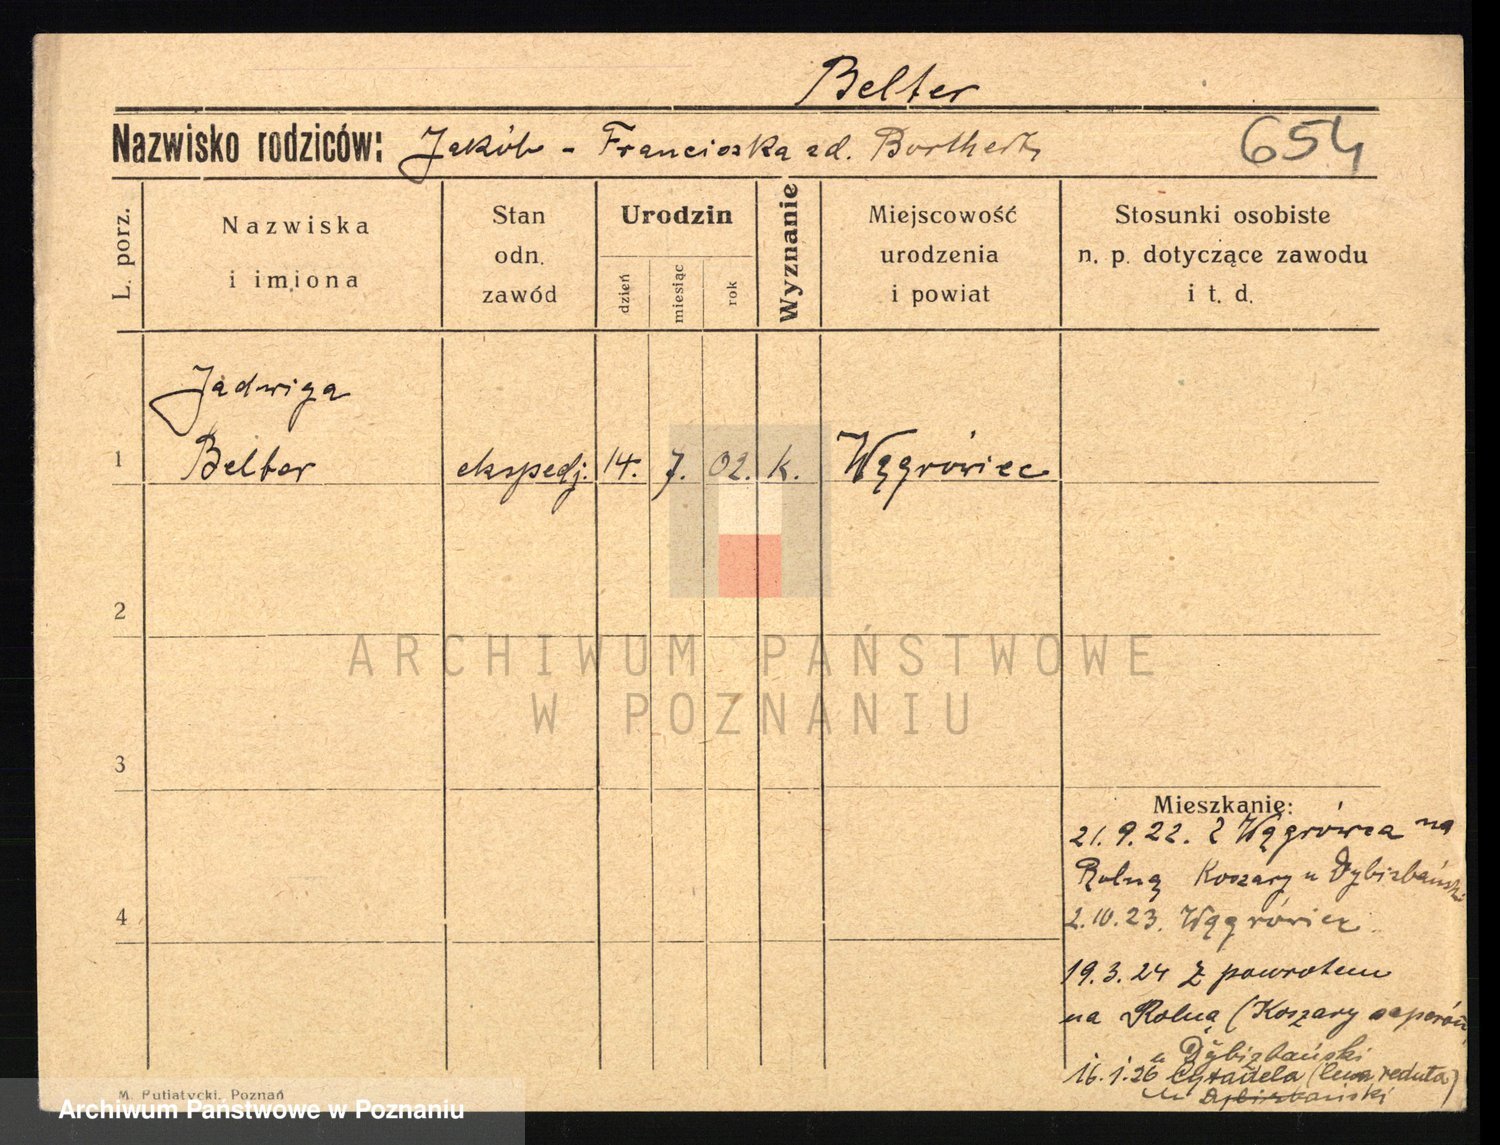 Belter
Nazwisko rodziców: Jakób - Franciszka zd. Borthert
654
L. porz.
Nazwiska
i imiona
Stan
odn.
zawód
Urodzin
dzień
miesiąc
rok
Wyznanie
Miejscowość
urodzenia
i powiat
Stosunki osobiste
n. p. dotyczące zawodu
i t. d.
Jadwiga
1 Belter ekspedj. 14. 7. 02. k. Wągrówiec
2
ARCHIWUM PAŃSTWOWE
W POZNANIU
3
Mieszkanie:
21.9.22. z Wągrówca na
Rolną Koszary u Dybizbański
4
2.10.23. Wągrówiec
19.3.24 z powrotem
na Rolną (Koszary saperów
u Dybizbański
16.1.26 Cytadela (lewa reduta)
u Dybizbański
M. Putiatycki, Poznań
Archiwum Państwowe w Poznaniu